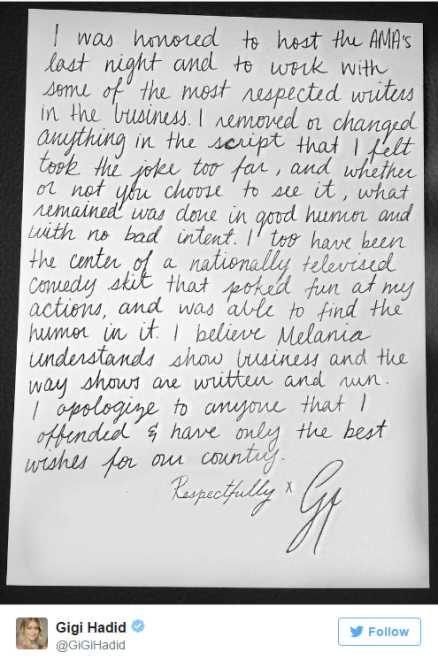 I was honored to host the AMA's
last night and to work with
some of the most respected writers
in the business. I removed or changed
anything in the script that I felt
took the joke too far, and whether
or not you choose to see it, what
remained was done in good humor and
with no bad intent. I too have been
the center of a nationally televised
comedy skit that poked fun at my
actions, and was able to find the
humor in it. I believe Melania
understands show business and the
way shows are written and run.
I apologize to anyone that I
offended & have only the best
wishes for our country.
Respectfully x Gi
Gigi Hadid
@GiGiHadid
Follow